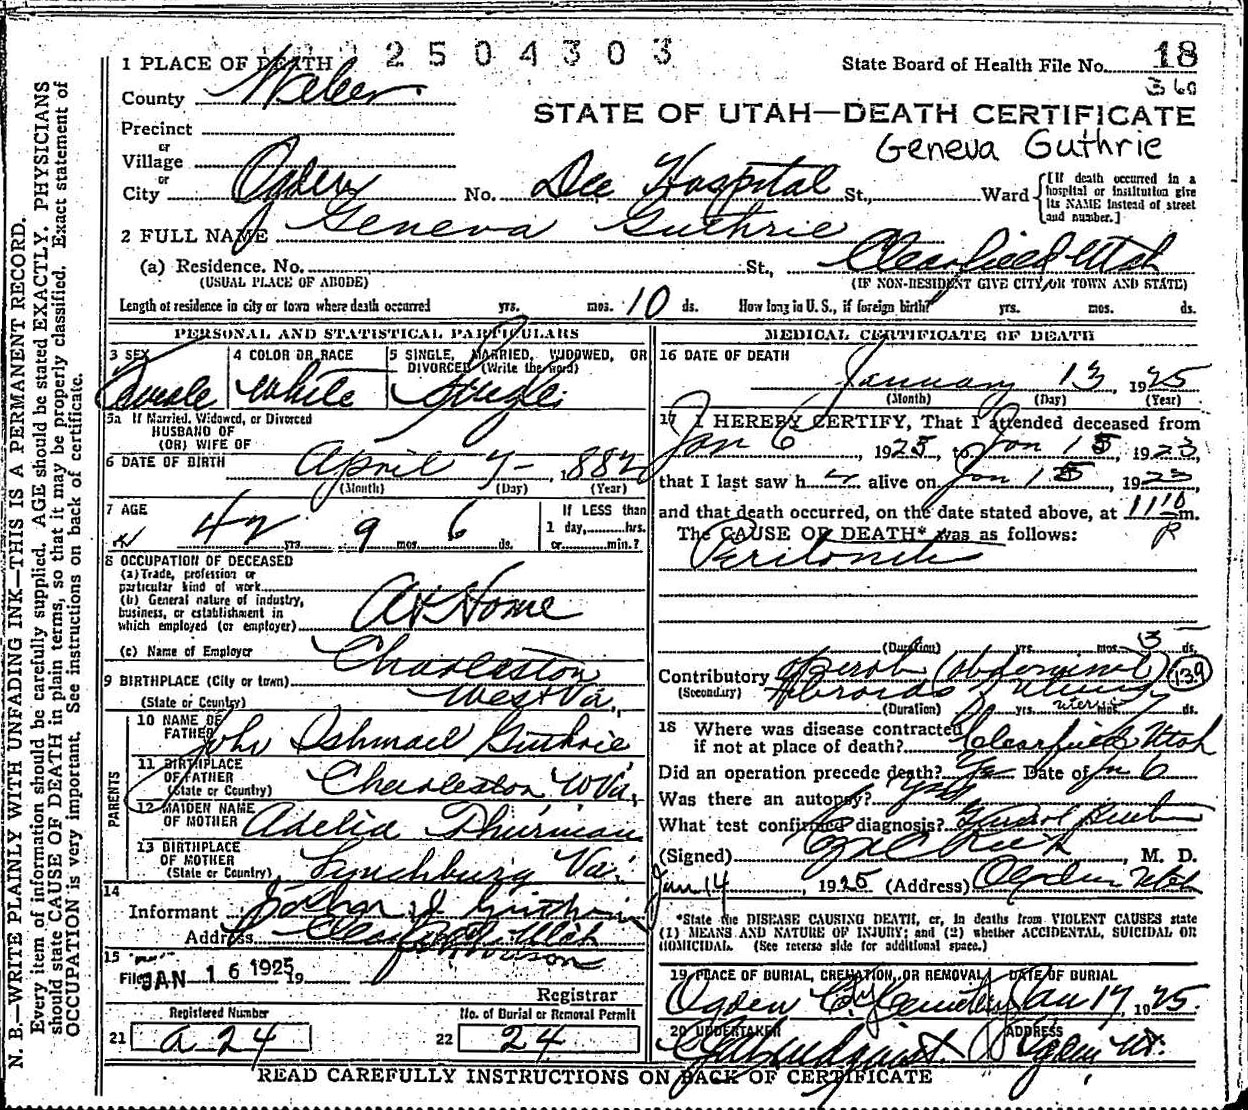 2 5 0 4 3 0 3
1 PLACE OF DEATH
State Board of Health File No. 18
360
County Weber
STATE OF UTAH—DEATH CERTIFICATE
Precinct
Geneva Guthrie
or
Village
or
City Ogden No. Dee Hospital St., Ward
[If death occurred in a hospital or institution give its NAME instead of street and number.]
2 FULL NAME Geneva Guthrie
(a) Residence. No. St., Clearfield Utah
(USUAL PLACE OF ABODE) (IF NON-RESIDENT GIVE CITY OR TOWN AND STATE)
Length of residence in city or town where death occurred yrs. mos. 10 ds. How long in U. S., if foreign birth? yrs. mos. ds.
PERSONAL AND STATISTICAL PARTICULARS
3 SEX Female
4 COLOR OR RACE White
5 SINGLE, MARRIED, WIDOWED, OR DIVORCED (Write the word) Single
5a If Married, Widowed, or Divorced
HUSBAND OF
(OR) WIFE OF
6 DATE OF BIRTH April 7- 1882
(Month) (Day) (Year)
7 AGE 42 yrs. 9 mos. 6 ds.
If LESS than 1 day, hrs. or min.?
8 OCCUPATION OF DECEASED
(a) Trade, profession or particular kind of work
(b) General nature of industry, business, or establishment in which employed (or employer)
At Home
(c) Name of Employer
9 BIRTHPLACE (City or town) Charleston
(State or Country) West Va.
PARENTS
10 NAME OF FATHER John Ishmael Guthrie
11 BIRTHPLACE OF FATHER (State or Country) Charleston W Va.
12 MAIDEN NAME OF MOTHER Adelia Thurman
13 BIRTHPLACE OF MOTHER (State or Country) Lynchburg Va.
14
Informant
Address Clearfield Utah
15
Filed JAN 16 1925 19
Registrar
Registered Number
21 a 24
No. of Burial or Removal Permit
22 24
MEDICAL CERTIFICATE OF DEATH
16 DATE OF DEATH
January 13 1925
(Month) (Day) (Year)
17 I HEREBY CERTIFY, That I attended deceased from
Jan 6, 1925, to Jan 13, 1923,
that I last saw h er alive on Jan 13, 1923
and that death occurred, on the date stated above, at 11 10 P m.
The CAUSE OF DEATH* was as follows:
Peritonitis
(Duration) yrs. mos. 3 ds.
Contributory (abdominal) 139
(Secondary) fibroids uterus
(Duration) yrs. mos. ds.
18 Where was disease contracted
if not at place of death? Clearfield Utah
Did an operation precede death? Yes Date of Jan 6
Was there an autopsy?
What test confirmed diagnosis?
(Signed) , M. D.
Jan 14, 1925 (Address) Ogden Utah
*State the DISEASE CAUSING DEATH, or, in deaths from VIOLENT CAUSES state
(1) MEANS AND NATURE OF INJURY; and (2) whether ACCIDENTAL, SUICIDAL OR
HOMICIDAL. (See reverse side for additional space.)
19 PLACE OF BURIAL, CREMATION, OR REMOVAL DATE OF BURIAL
Ogden City Cemetery Jan 17, 1925.
20 UNDERTAKER ADDRESS
Ogden Ut.
READ CAREFULLY INSTRUCTIONS ON BACK OF CERTIFICATE
N. B.—WRITE PLAINLY WITH UNFADING INK—THIS IS A PERMANENT RECORD.
Every item of information should be carefully supplied. AGE should be stated EXACTLY. PHYSICIANS
should state CAUSE OF DEATH in plain terms, so that it may be properly classified. Exact statement of
OCCUPATION is very important. See instructions on back of certificate.